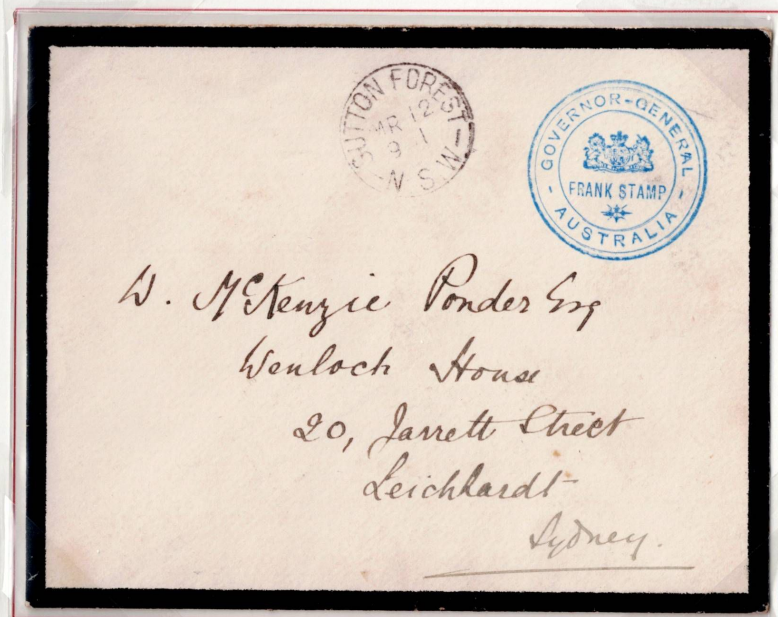 SUTTON FOREST
MR 12
9 1
N.S.W
GOVERNOR-GENERAL
FRANK STAMP
AUSTRALIA
W. McKenzie Ponder Esq
Wenloch House
20, Jarrett Street
Leichhardt
Sydney.